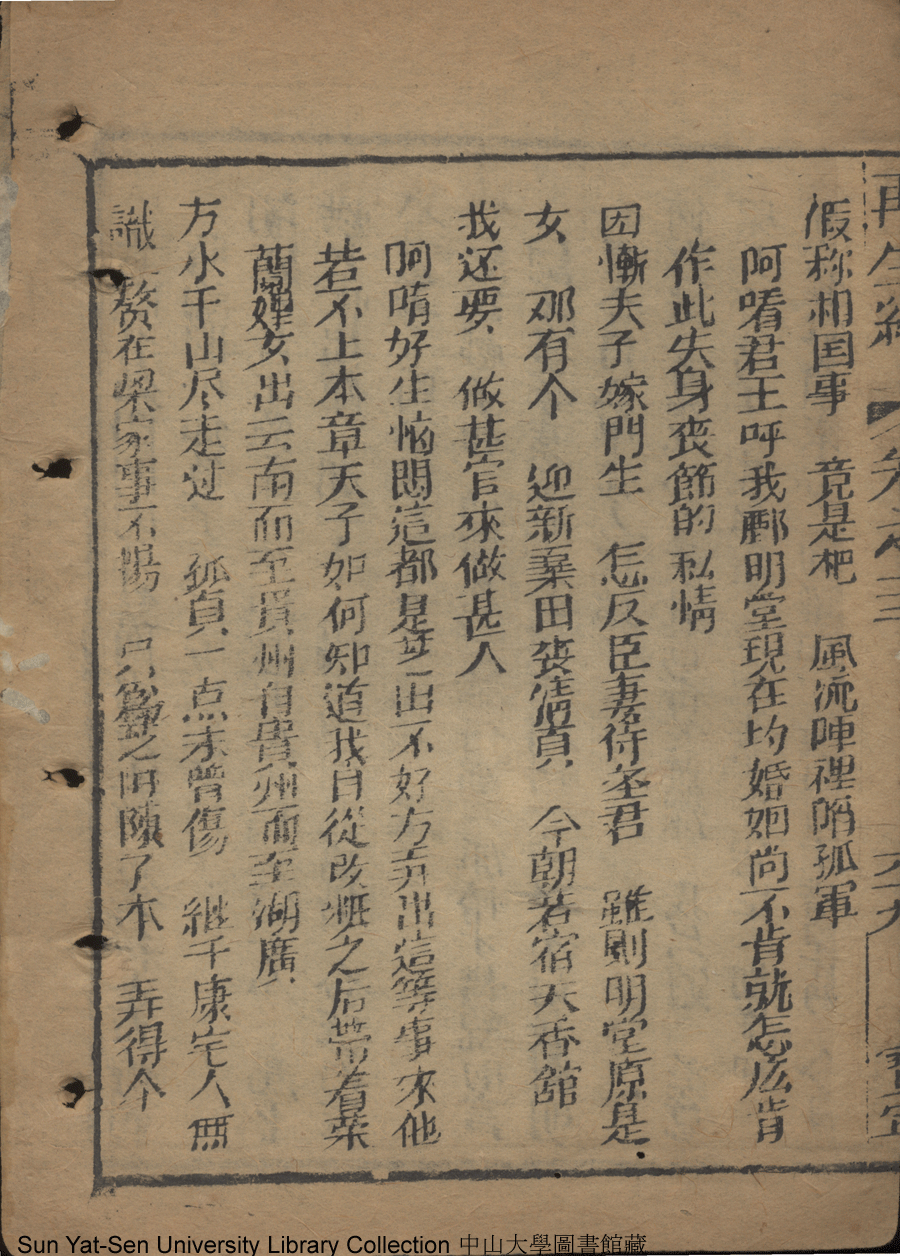 再生緣 卷之三 六十九
假称相国事 竟是杷 風流陣裡陷孤軍
阿唷君王呼我酈明堂現在均婚姻尚不肯就怎広肯
作此失身丧節的私情
因慚夫子嫁門生 怎反臣妻侍圣君 雖則明堂原是
女 那有个 迎新棄田丧清貞 今朝若宿天香舘
我还要 做甚官來做甚人
阿唷好生恼悶這都是 出不好方弄出這等事來他
若不上本章天子如何知道我自從改粧之后带着荣
蘭婢女出云南而至貴州自貴州而至湖廣
万水千山尽走过 孤貞一点未曾傷 継于康宅人無
識 赘在梁家事不揚 只 之田陳了本 弄得个
Sun Yat-Sen University Library Collection 中山大學圖書館藏